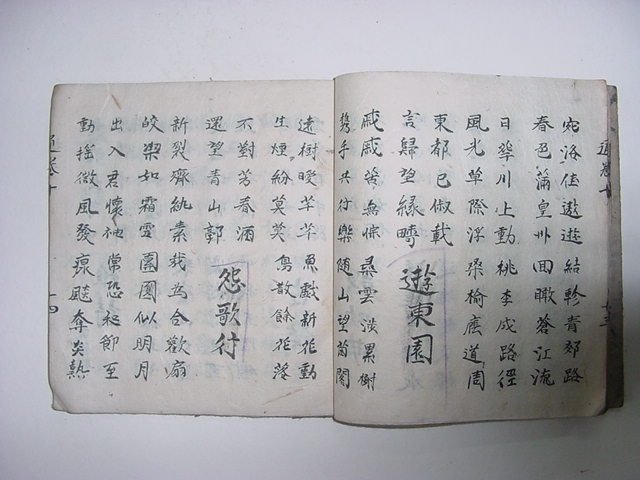 宛洛佳遨遊結軫青郊路
春色滿皇州回瞰蒼江流
日華川上動桃李成路徑
風光草際浮桑榆廕道周
東都已俶載
言歸望緑疇
遊東園
戚戚苦無悰尋雲涉累榭
携手共行樂隨山望菌閣
遠樹曖芊芊魚戲新花動
生煙紛莫莫鳥散餘花落
不對芳春酒
還望青山郭
怨歌行
新裂齊紈素裁為合歡扇
皎潔如霜雪團圓似明月
出入君懷袖常恐秋節至
動搖微風發凉飈奪炎熱
十四